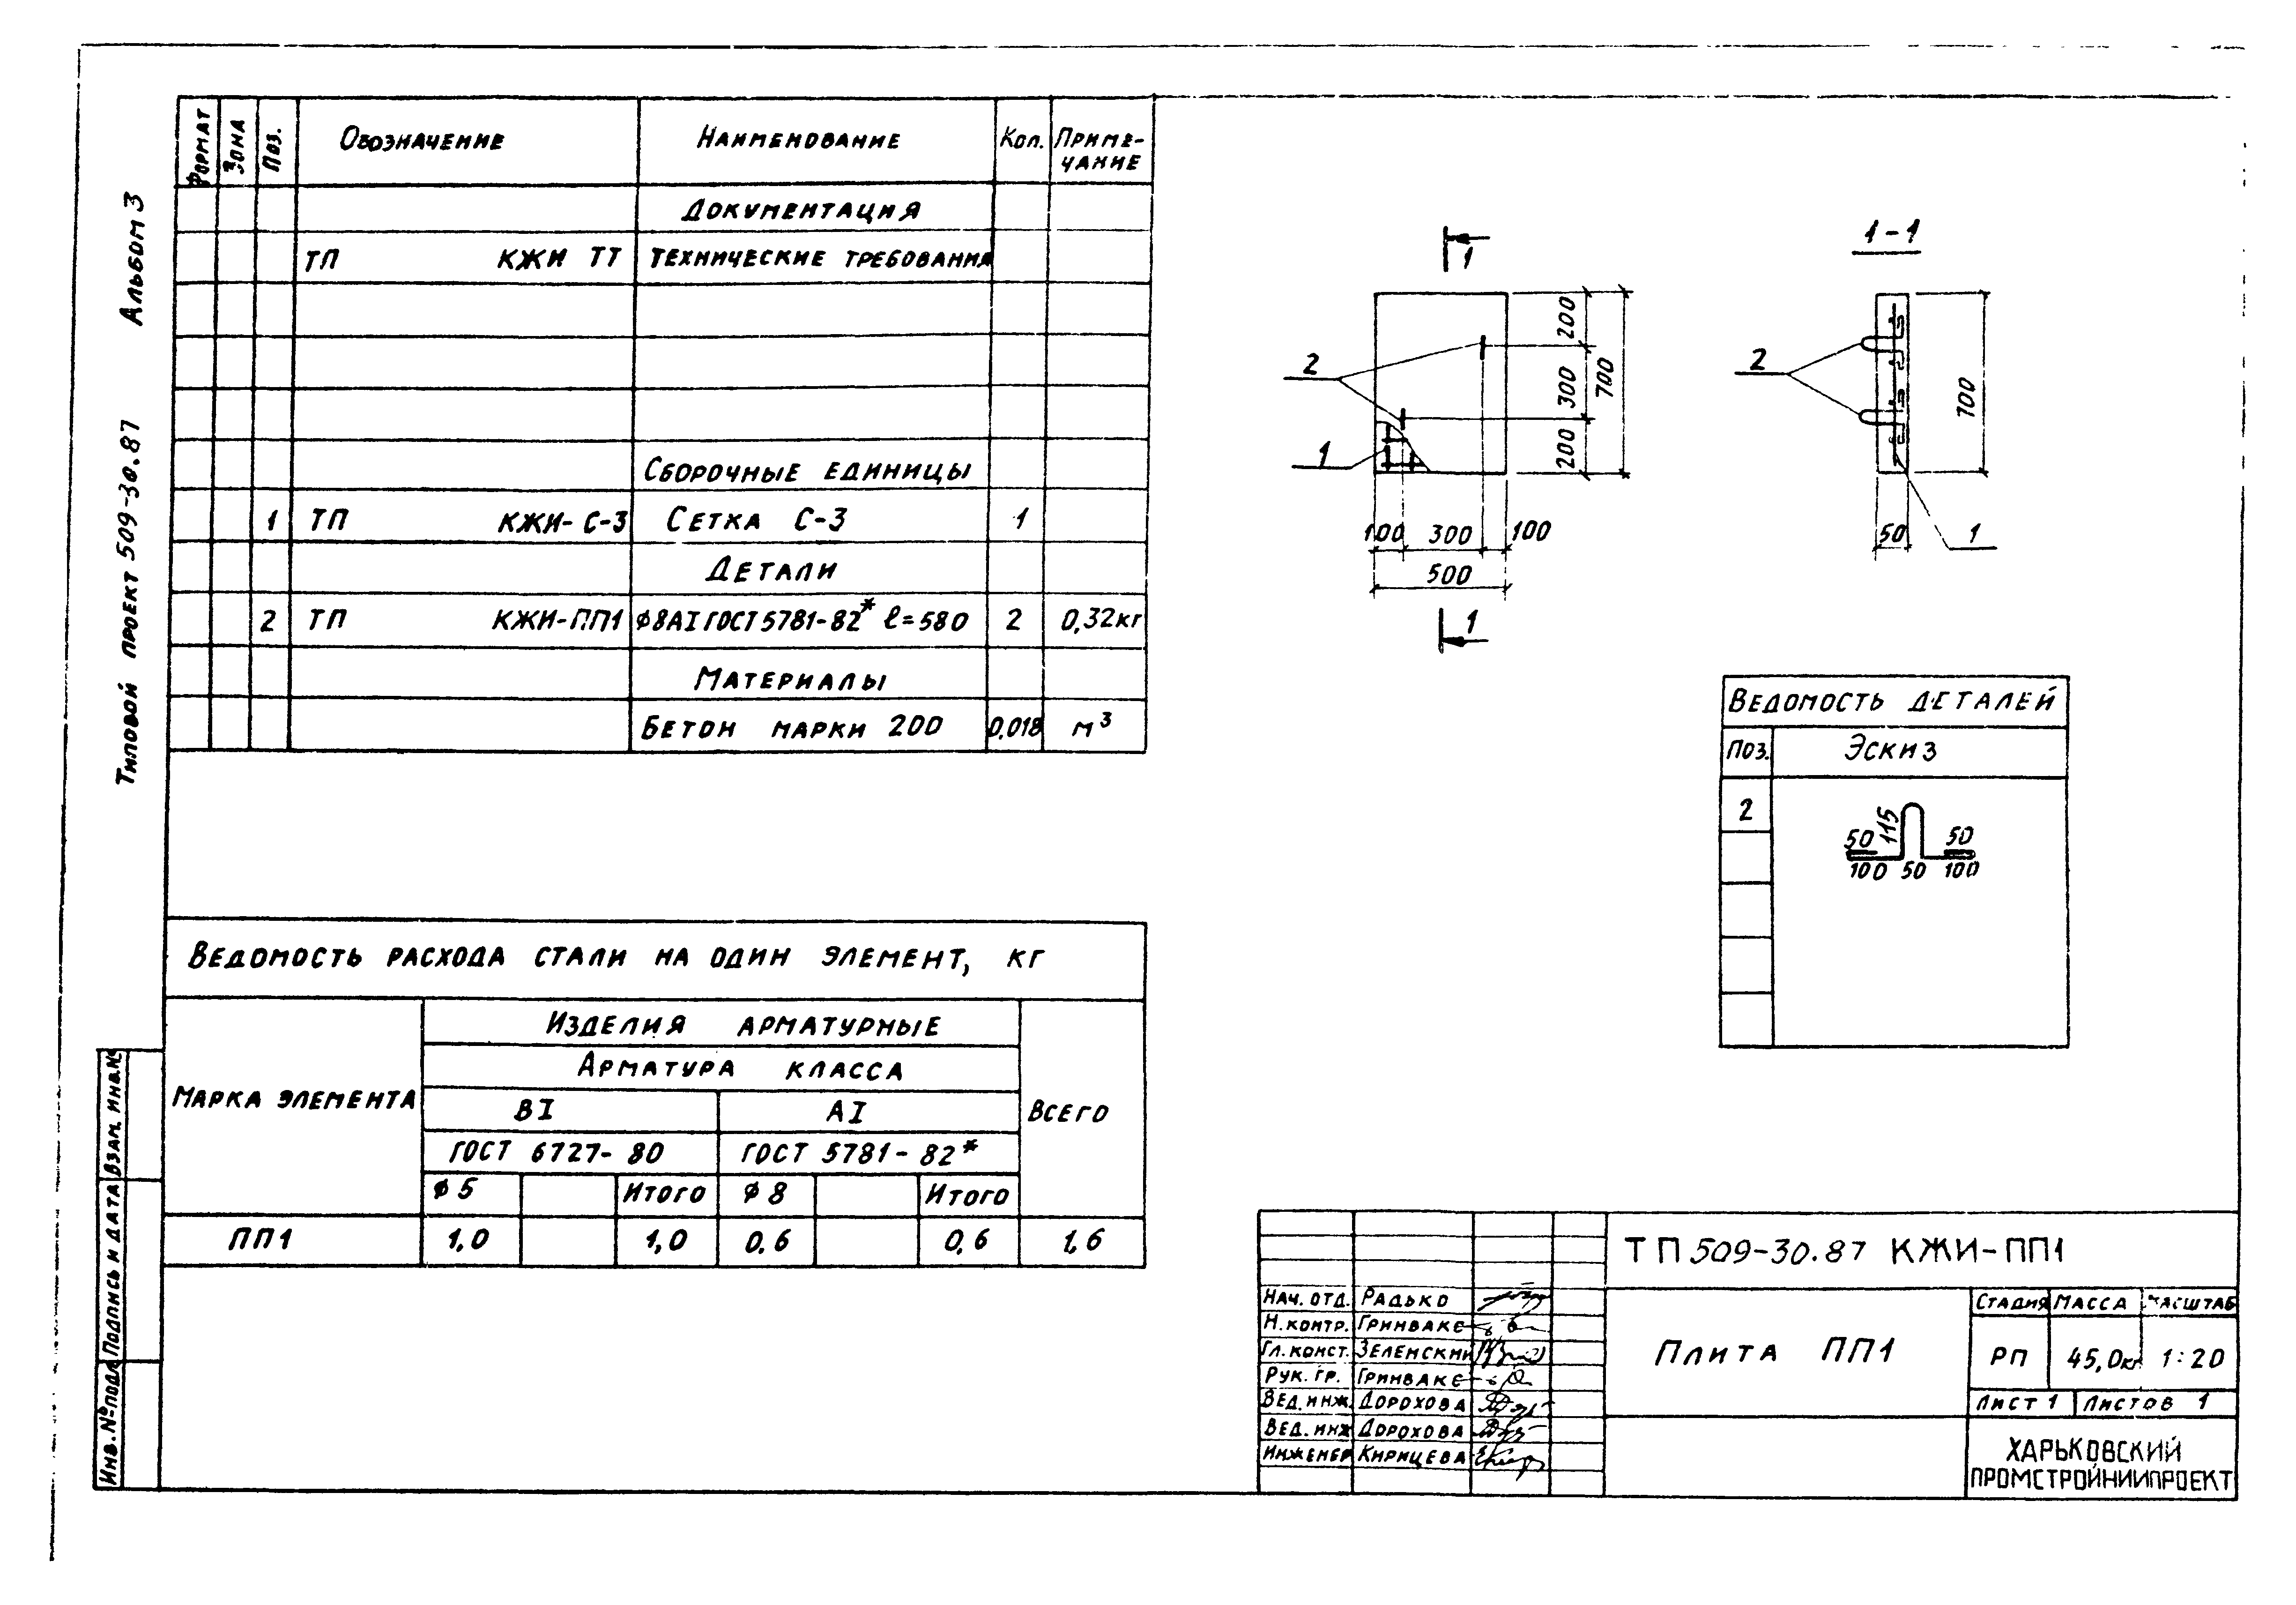 Альбом 3
Типовой проект 509-30.87
Формат Зона Поз. Обозначение Наименование Кол. Приме-
чание
Документация
ТП КЖИ ТТ Технические требования
Сборочные единицы
1 ТП КЖИ-С-3 Сетка С-3 1
Детали
2 ТП КЖИ-ПП1 ϕ8АI ГОСТ 5781-82* ℓ=580 2 0,32кг
Материалы
Бетон марки 200 0,018 м³
1
2
1
200
300
200
700
100 300 100
500
1
1-1
2
700
50
1
Ведомость деталей
Поз. Эскиз
2
115
50 50
100 50 100
Ведомость расхода стали на один элемент, кг
Марка элемента
Изделия арматурные
Арматура класса
ВI АI
Всего
ГОСТ 6727-80 ГОСТ 5781-82*
ϕ5 Итого ϕ8 Итого
ПП1 1,0 1,0 0,6 0,6 1,6
Взам. инв.№
Подпись и дата
Инв.№подл.
ТП 509-30.87 КЖИ-ПП1
Нач. отд. Радько
Н.контр. Гринваке
Гл.конст. Зеленский
Рук. гр. Гринваке
Вед.инж. Дорохова
Вед.инж Дорохова
Инженер Кирицева
Плита ПП1
Стадия Масса Масштаб
РП 45,0кг 1:20
Лист 1 Листов 1
ХАРЬКОВСКИЙ
ПРОМСТРОЙНИИПРОЕКТ